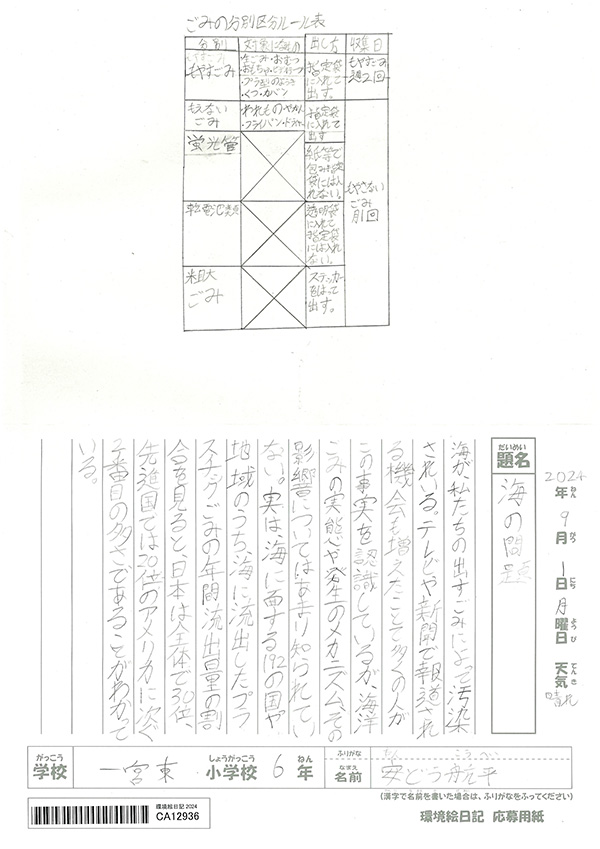 ごみの分別区分ルール表
分別 対象になるもの 出し方 収集日
もやすごみ
・生ごみ・おむつ
・おもちゃ・ビデオテープ
・プラ型のようき
・くつ・カバン
指定袋に入れて出す。
もやすごみ
週2回
もえないごみ
・われもの・やかん
・フライパン・ドライヤー
指定袋に入れて出す
蛍光管
紙等で包み指定袋には入れない。
もやさないごみ
月1回
乾電池
透明袋に入れて指定袋には入れない。
粗大ごみ
ステッカーをはって出す。
2024年 9月 1日 月曜日 天気 晴れ
ねん がつ にち ようび てんき
だいめい
題名
海の問題
海が、私たちの出すごみによって汚染
されいる。テレビや新聞で報道され
る機会も増えたことで多くの人が
この事実を認識しているが、海洋
ごみの実態や発生のメカニズム、その
影響についてはあまり知られてい
ない。実は、海に面する192の国や
地域のうち、海に流出したプラ
スチックごみの年間流出量の割
合を見ると、日本は全体で30位、
先進国では20位のアメリカに次ぐ
2番目の多さであることがわかって
いる。
がっこう しょうがっこう ねん ふりがな こうへい
学校 一宮東 小学校 6年 なまえ 名前 安どう航平
(漢字で名前を書いた場合は、ふりがなをふってください)
環境絵日記2024
CA12936
環境絵日記 応募用紙